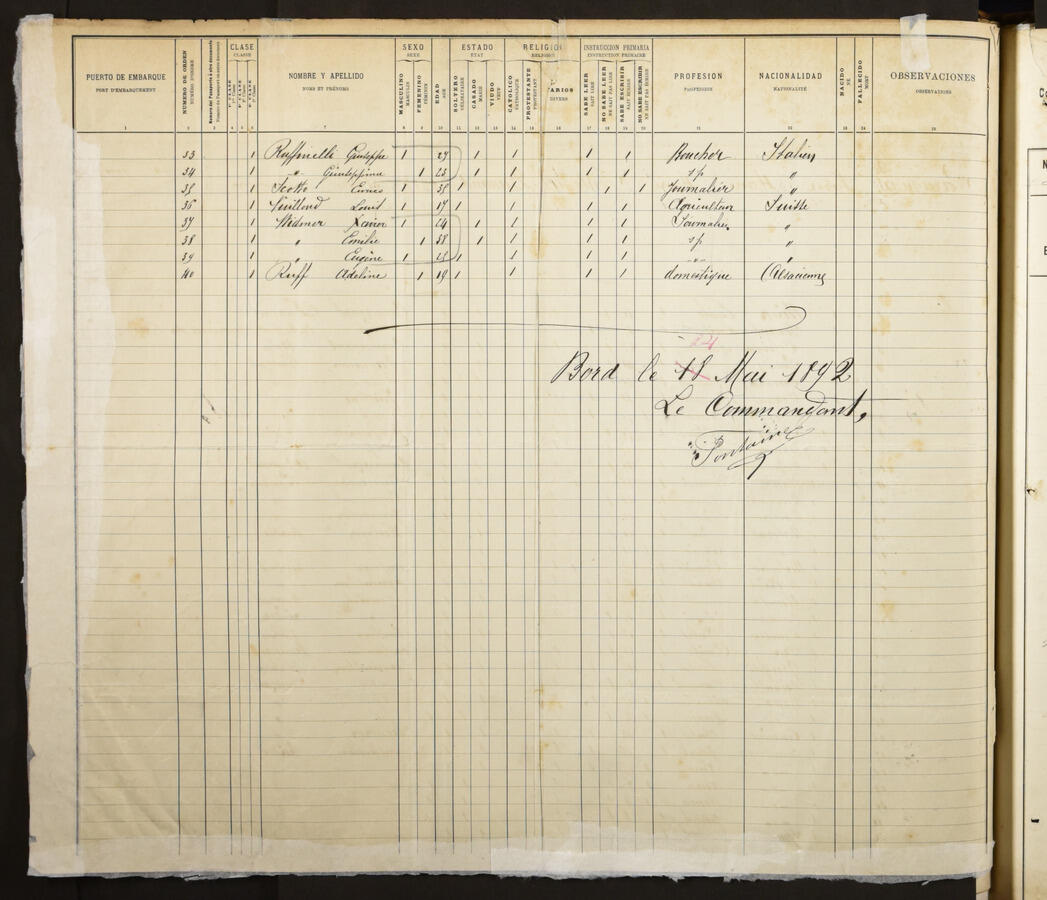 PUERTO DE EMBARQUE PORT D'EMBARQUEMENT 1
NUMERO DE ORDEN NUMÉRO D'ORDRE 2
3
CLASE CLASSE 4 5 6
NOMBRE Y APELLIDO NOMS ET PRÉNOMS 7
SEXO SEXE MASCULINO MASCULIN 8 FEMENINO FÉMININ 9
EDAD AGE 10
ESTADO ÉTAT SOLTERO CÉLIBATAIRE 11 CASADO MARIÉ 12 VIUDO VEUF 13
RELIGION RELIGION CATÓLICO CATHOLIQUE 14 PROTESTANTE PROTESTANT 15 VARIOS DIVERS 16
INSTRUCCION PRIMARIA INSTRUCTION PRIMAIRE SABE LEER SAIT LIRE 17 NO SABE LEER NE SAIT PAS LIRE 18 SABE ESCRIBIR SAIT ÉCRIRE 19 NO SABE ESCRIBIR NE SAIT PAS ÉCRIRE 20
PROFESION PROFESSION 21
NACIONALIDAD NATIONALITÉ 22
NACIDO NÉ 23
FALLECIDO MORT 24
OBSERVACIONES OBSERVATIONS 25
33 1 Ruffinelli Giuseppe 1 27 1 1 1 1 Boucher Italien
34 1 " Giuseppina 1 23 1 1 1 1 s/p "
35 1 Scotto Enrico 1 38 1 1 1 1 Journalier "
36 1 Louis 1 17 1 1 1 1 Agriculteur Suisse
37 1 Widmer Xavier 1 44 1 1 1 1 Journalier "
38 1 " Emilie 1 38 1 1 1 1 s/p "
39 1 " Eugène 1 1 1 1 1 " "
40 1 Ruff Adeline 1 19 1 1 1 1 domestique Alsacienne
24
Bord le 18 Mai 1892
Le Commandant,
Fontaine